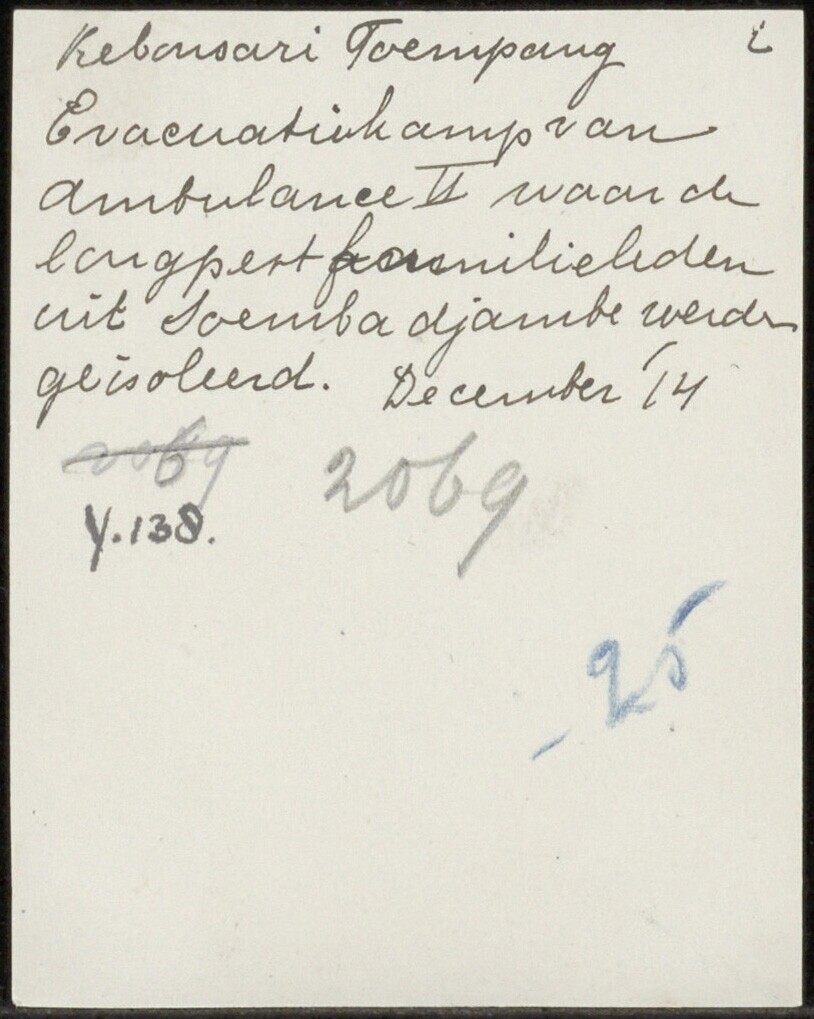 Kebonsari Toempang i
Evacuatiekamp van
Ambulance II waar de
longpest familieleden
uit Soemba djambe werden
geisoleerd. December '14
2069
2069
Y.138.
95